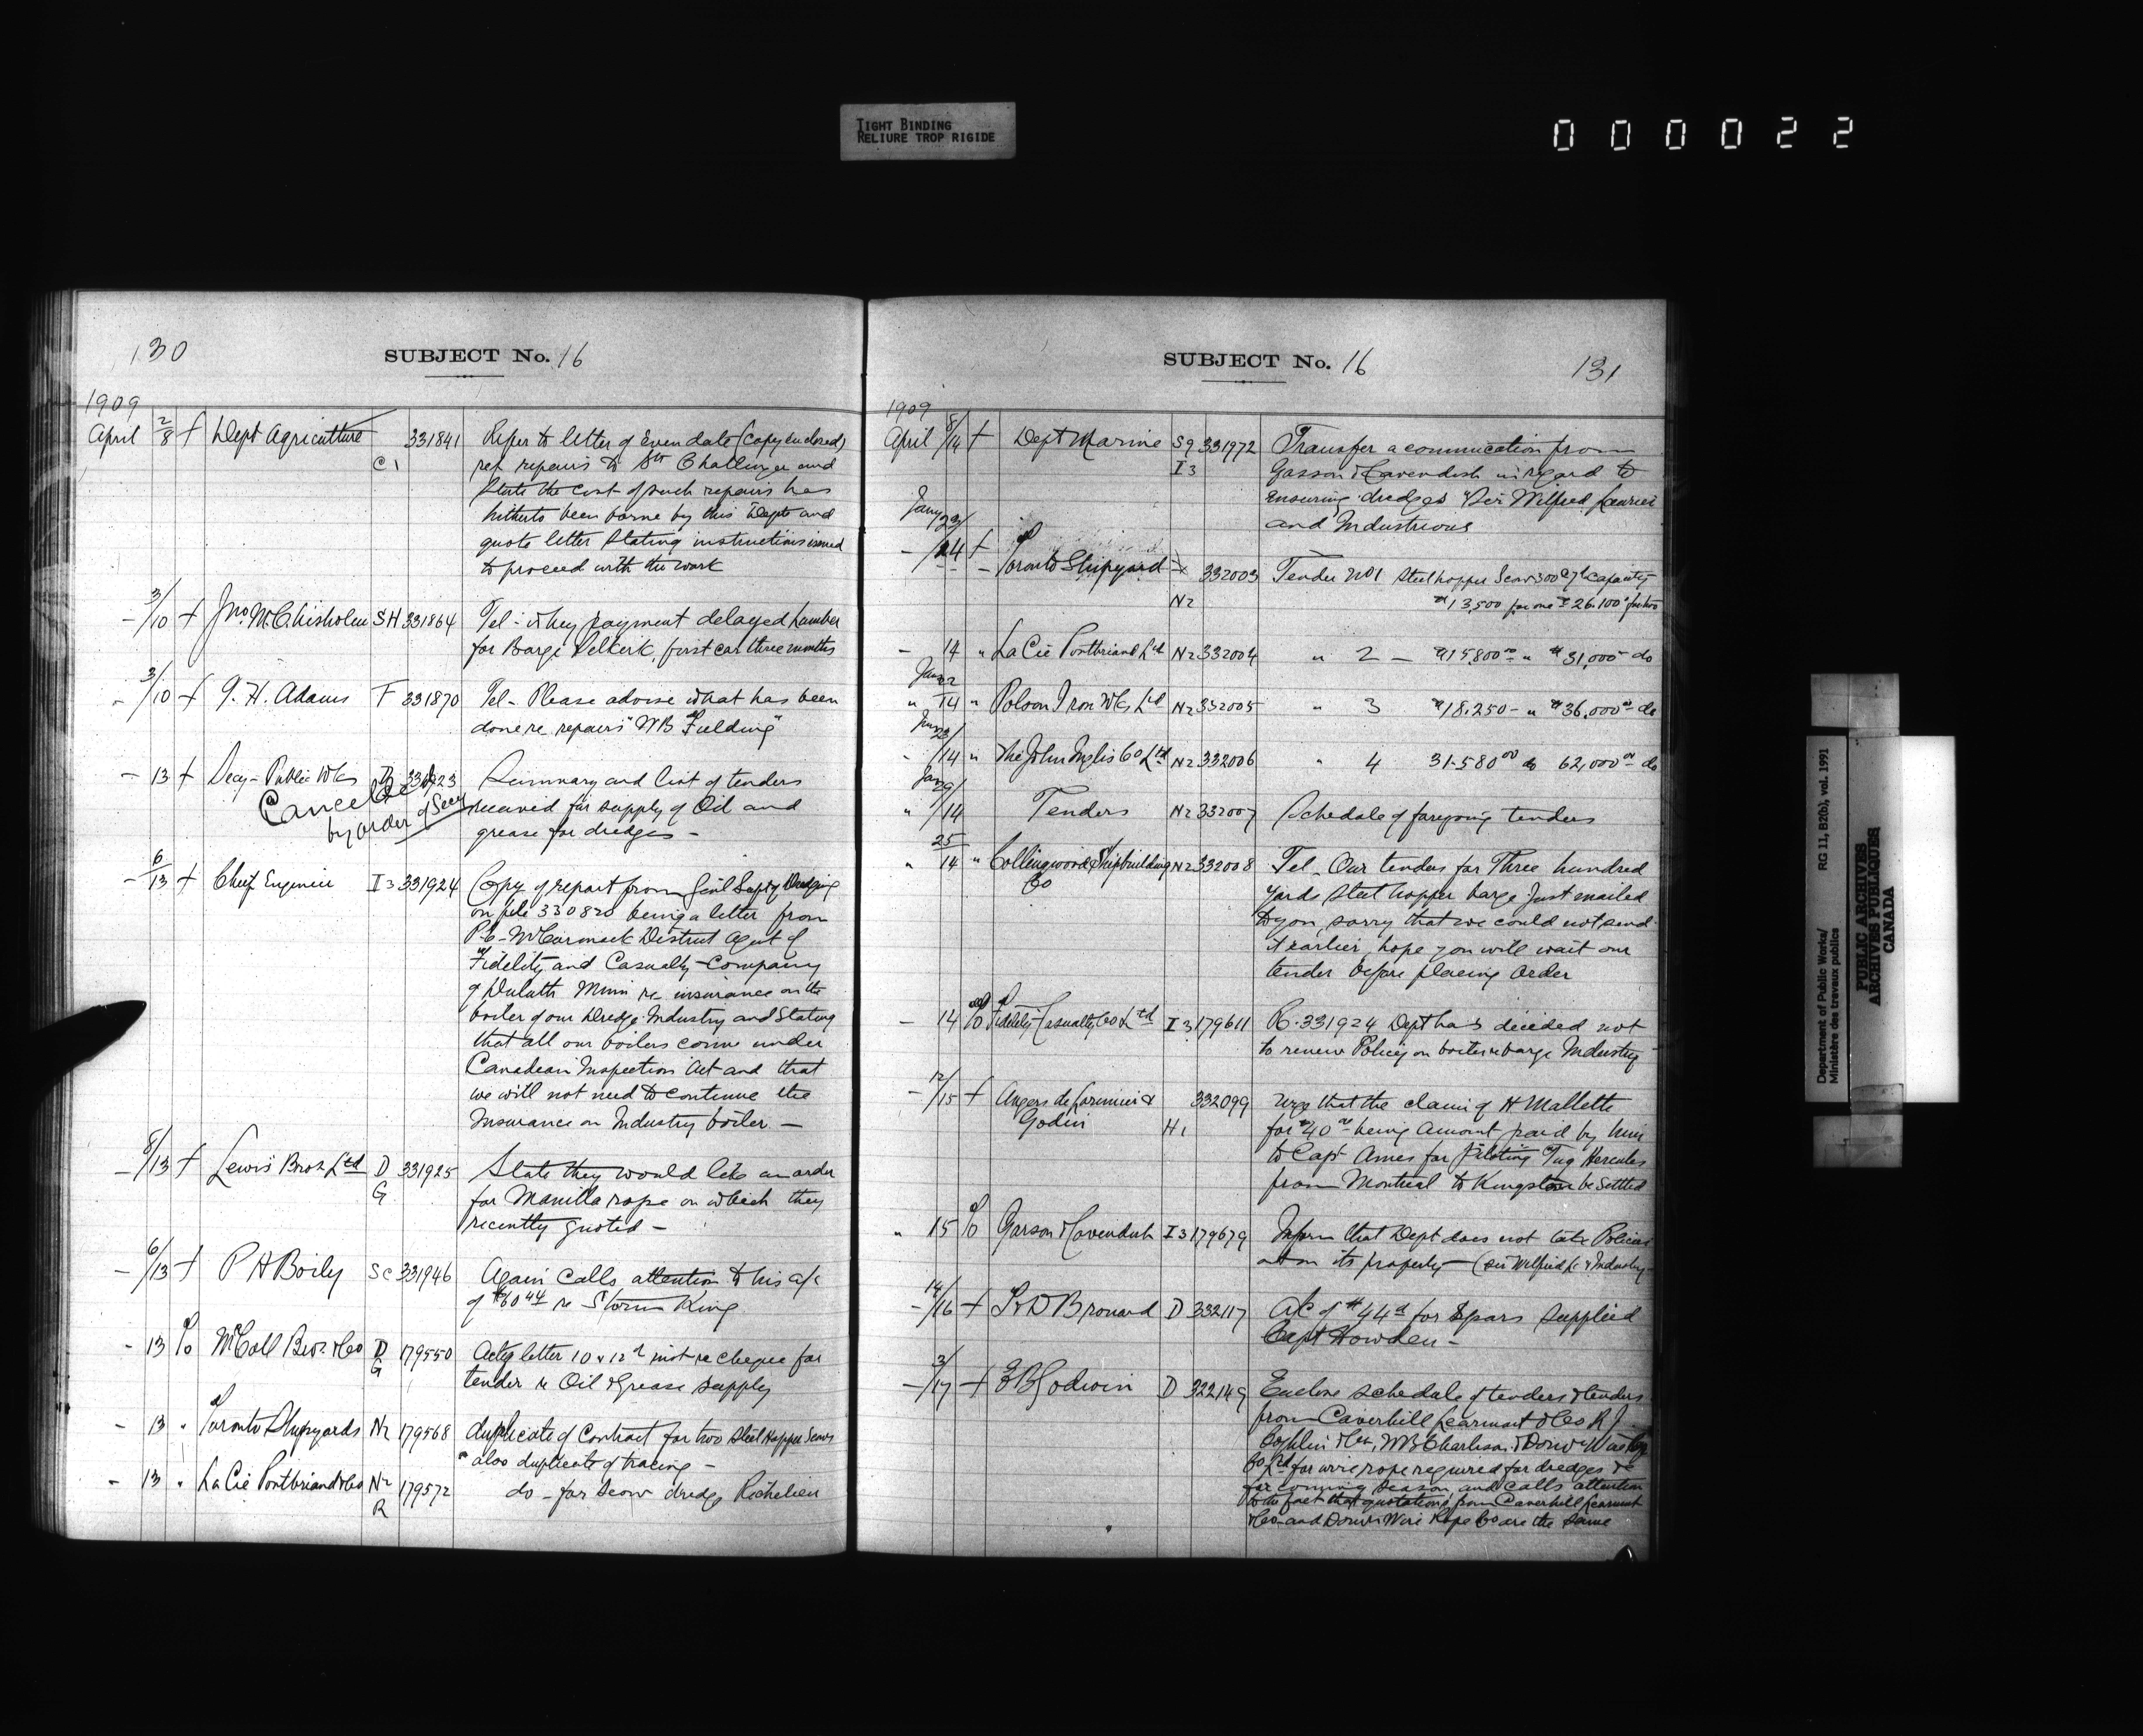 TIGHT BINDING
RELIURE TROP RIGIDE
000022
130
SUBJECT No. 16
1909
April 2/8 + Dept Agriculture C1 331841 Refer to letter of even date (copy enclosed)
ref repairs to Str Challenger and
state the cost of such repairs has
hitherto been borne by this Dept and
quote letter stating instructions issued
to proceed with the work
- 3/10 + Jno. McChisholm SH 331864 Tel - Why payment delayed lumber
for Barge Selkirk, first car three months
- 3/10 + G. H. Adams F 331870 Tel - Please advise what has been
done re repairs "WB Fielding"
- 13 + Secy - Public Wks D 331923 Summary and list of tenders
received for supply of Oil and
grease for dredges -
Cancelled
by order of Secy
- 6/13 + Chief Engineer I3 331924 Copy of report from Genl Supt of Dredging
on file 330820 being a letter from
P.C. McCormack District Agent of
Fidelity and Casualty Company
of Duluth Minn re insurance on the
boiler of our Dredge Industry and stating
that all our boilers come under
Canadian Inspection Act and that
we will not need to continue the
Insurance on Industry boiler -
- 8/13 + Lewis Bros Ltd D G 331925 State they would like an order
for Manilla rope on which they
recently quoted -
- 6/13 + P A Boily Sc 331946 Again calls attention to his a/c
of re Storm King
- 13 To McColl Bros. & Co D G 179550 letter 10 & 12th inst re cheque for
tender re Oil & Grease supply
- 13 " Toronto Shipyards N2 179568 duplicate of Contract for two Steel Hopper Scows
" also duplicate of tracing -
- 13 " La Cie Pontbriand & Co N2 R 179572 do - for Scow dredge Richelieu
SUBJECT No. 16
131
1909
April 8/14 + Dept Marine S9 I3 331972 Transfer a commucation from
Garson & Cavendish in regard to
ensuring dredges "Sir Wilfred Laurier
and Industrious
Jany 23/
- 14 + Toronto Shipyard N2 332003 Tender No 1 Steel hopper Scow 300 capacity
$13,500 for one $26.100 for two
- 14 " La Cie Pontbriand Ltd N2 332004 " 2 - $15,800 00 " $31,000 - do
Jany 22
" 14 " Polson Iron Wks Ltd N2 332005 " 3 $18.250 - " $36,000 00 do
Jany 23/
- 14 " The John Inglis Co Ltd N2 332006 " 4 31-580 00 do 62,000 00 do
Jany 29/
" 14 Tenders N2 332007 Schedule of foregoing tenders
" 25/14 " Collingwood Shipbuilding Co N2 332008 Tel - Our tenders for Three hundred
yards steel hopper barge just mailed
to you, sorry that we could not send
it earlier, hope you will wait our
tender before placing order
- 14 To Fidelity & Casualty Co Ltd I3 179611 R. 331924 Dept has decided not
to renew Policy on boiler barge Industry
- 12/15 + Angers de Lorimier & Godin H1 332099 Urge that the claim of H Mallette
for $40 00 being amount paid by him
to Capt Ames for piloting Tug Hercules
from Montreal to Kingston be settled
" 15 To Garson & Cavendish I3 179679 Inform that Dept does not take Policies
out on its property - (Sir Wilfrid L. & Industry -
- 14/16 + D Brouard D 332117 A/c of $44 for Spars supplied
Capt Howden -
- 3/17 + Godwin D 322149 Enclose schedule of tenders & tenders
from Caverhill Learmont & Co R J
Coghlin & Co, WB Charlson, & Donn
Co Ltd for wire rope required for dredges &c
for coming season, and calls attention
to the fact that quotations from Caverhill Learmont
& Co - and Wire Rope Co are the same
Department of Public Works/
Ministère des travaux publics
RG 11, B2(b), vol. 1991
PUBLIC ARCHIVES
ARCHIVES PUBLIQUES
CANADA